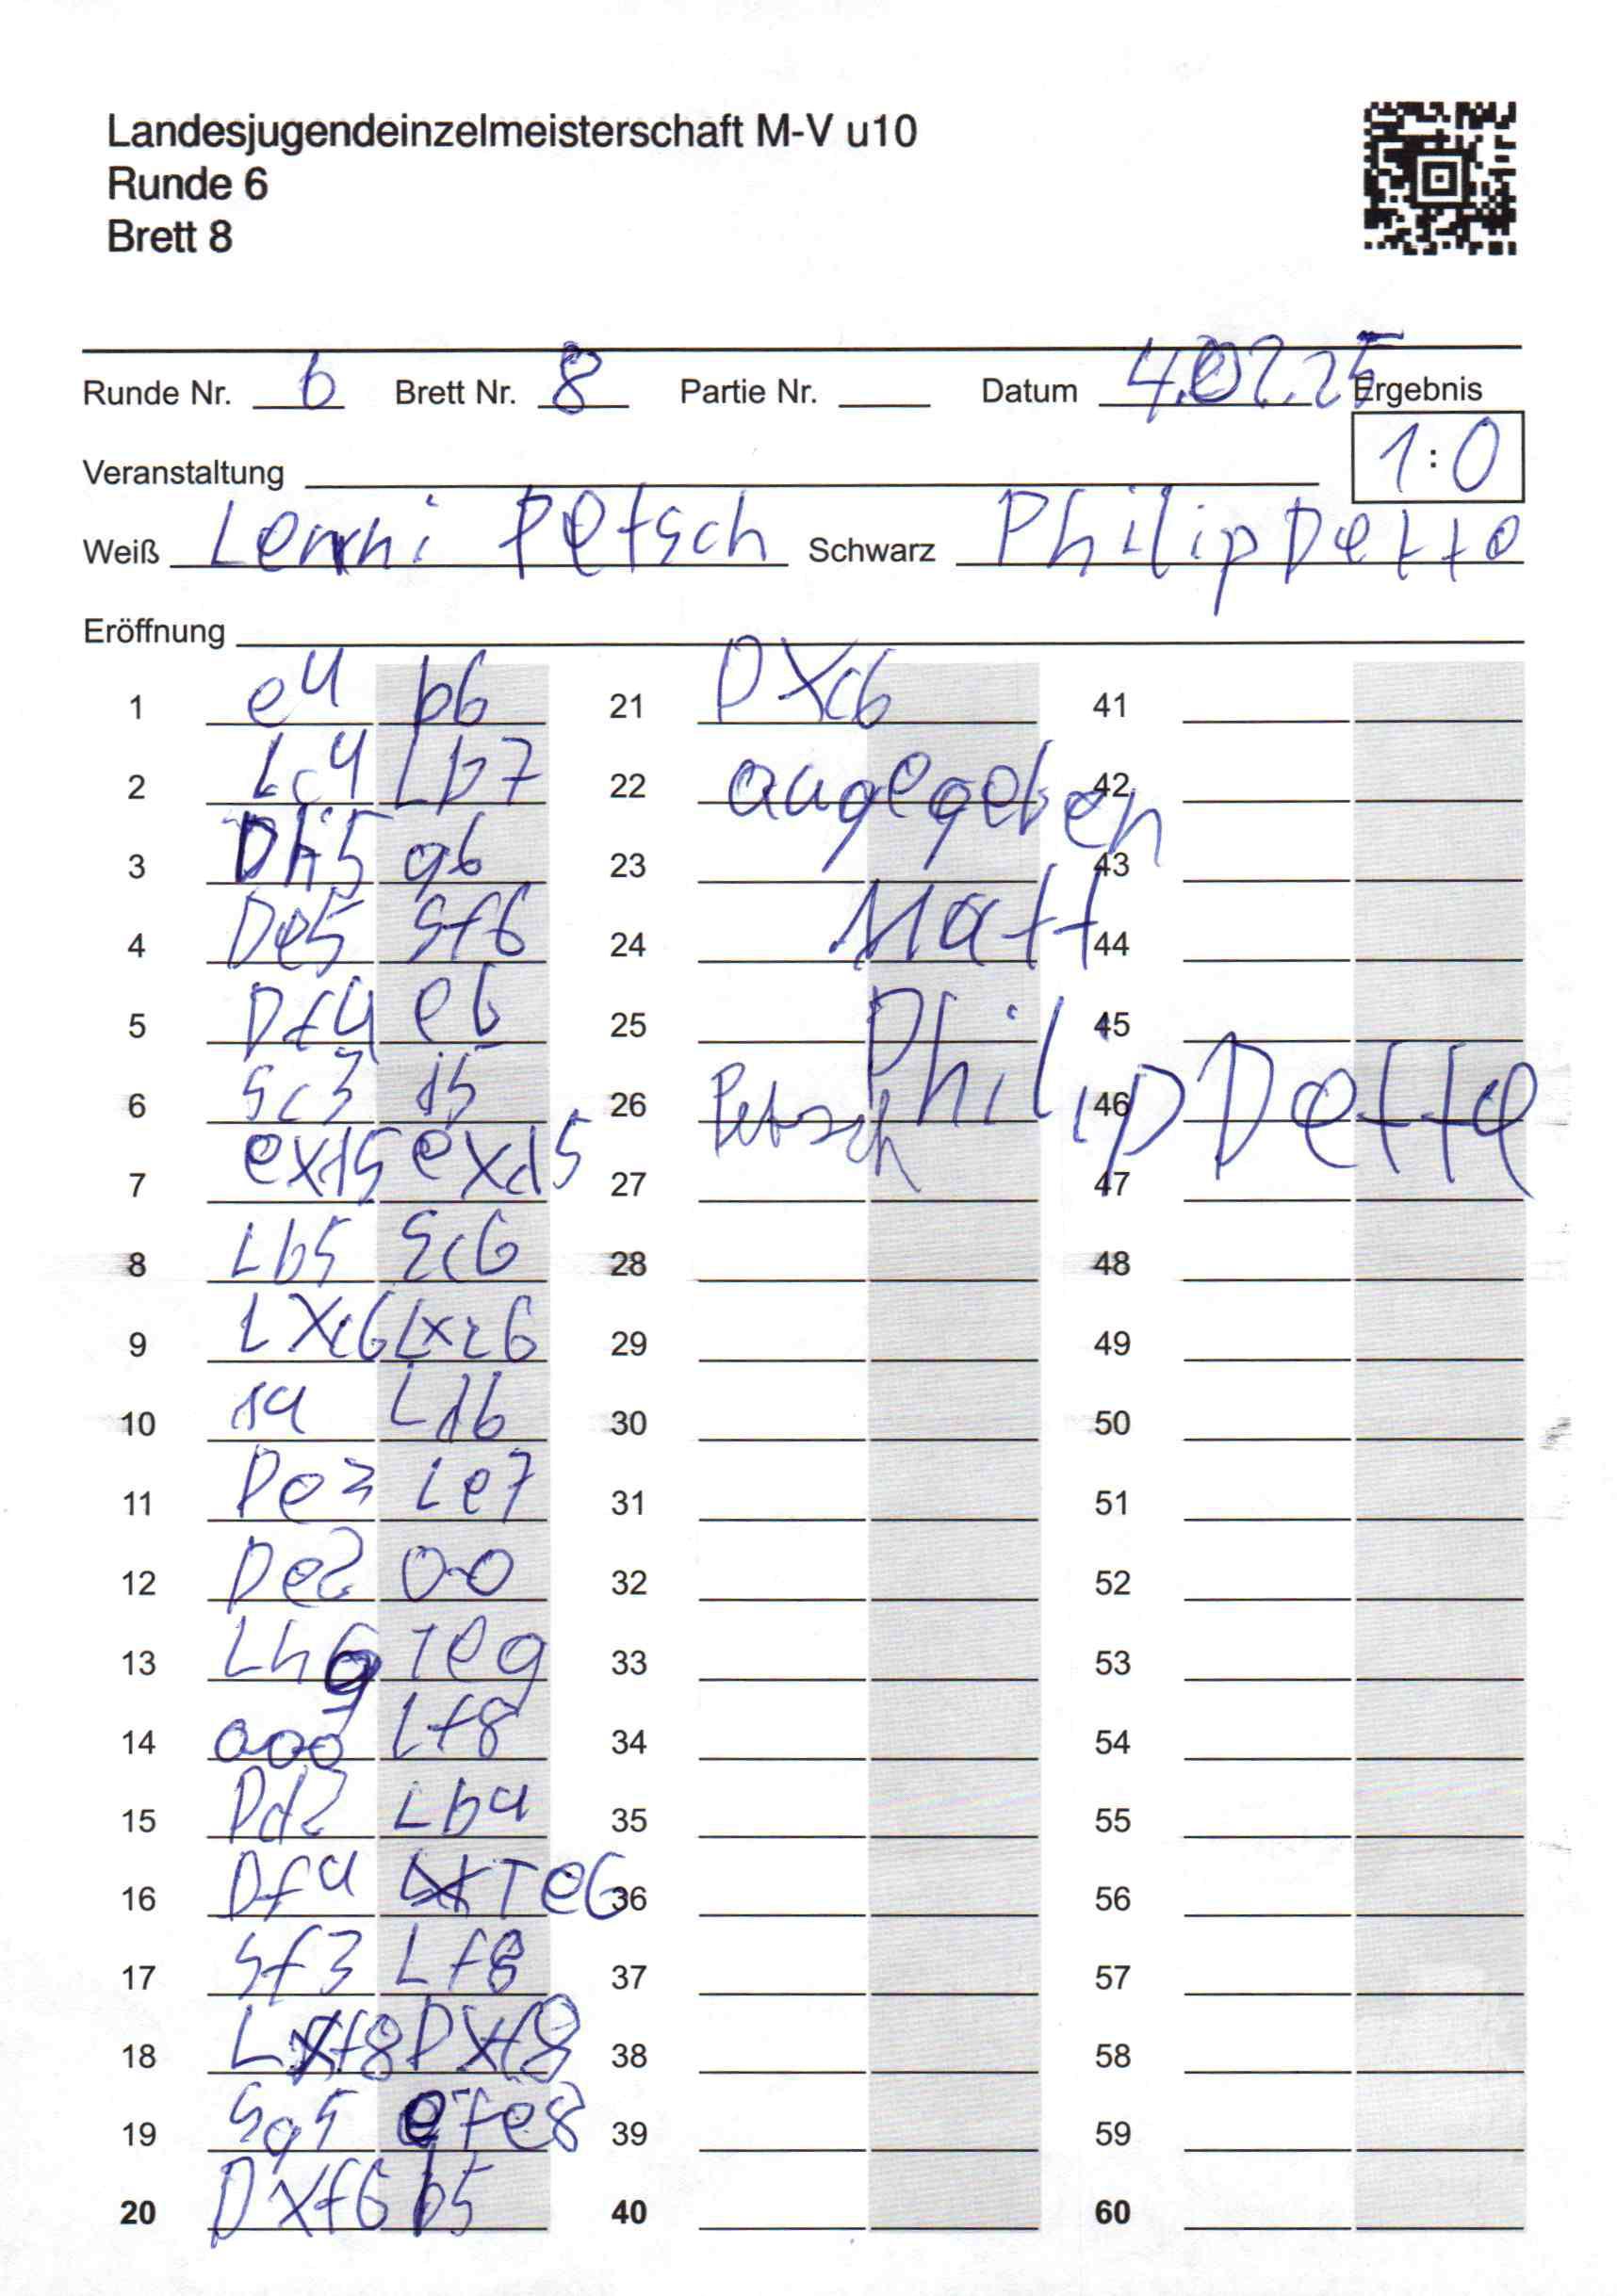 Landesjugendeinzelmeisterschaft M-V u10
Runde 6
Brett 8
Runde Nr. 6 Brett Nr. 8 Partie Nr. Datum 4.02.25 Ergebnis
1:0
Veranstaltung
Weiß Lenni Petsch Schwarz Philip Dette
Eröffnung
1 e4 b6 21 DXc6 41
2 Lc4 Lb7 22 augegeben 42
3 Dh5 g6 23 43
4 De5 Sf6 24 Matt 44
5 Df4 e6 25 45
6 Sc3 d5 26 Petsch Philip Dette 46
7 exd5 exd5 27 47
8 Lb5 Sc6 28 48
9 LXc6 Lxc6 29 49
10 d4 Ld6 30 50
11 De3 Le7 31 51
12 De2 0-0 32 52
13 Lh6 Te8 33 53
14 000 Lf8 34 54
15 Dd2 Lb4 35 55
16 Df4 Te6 36 56
17 Sf3 Lf8 37 57
18 LXf8 DXf8 38 58
19 Sg5 Te8 39 59
20 DXf6 b5 40 60